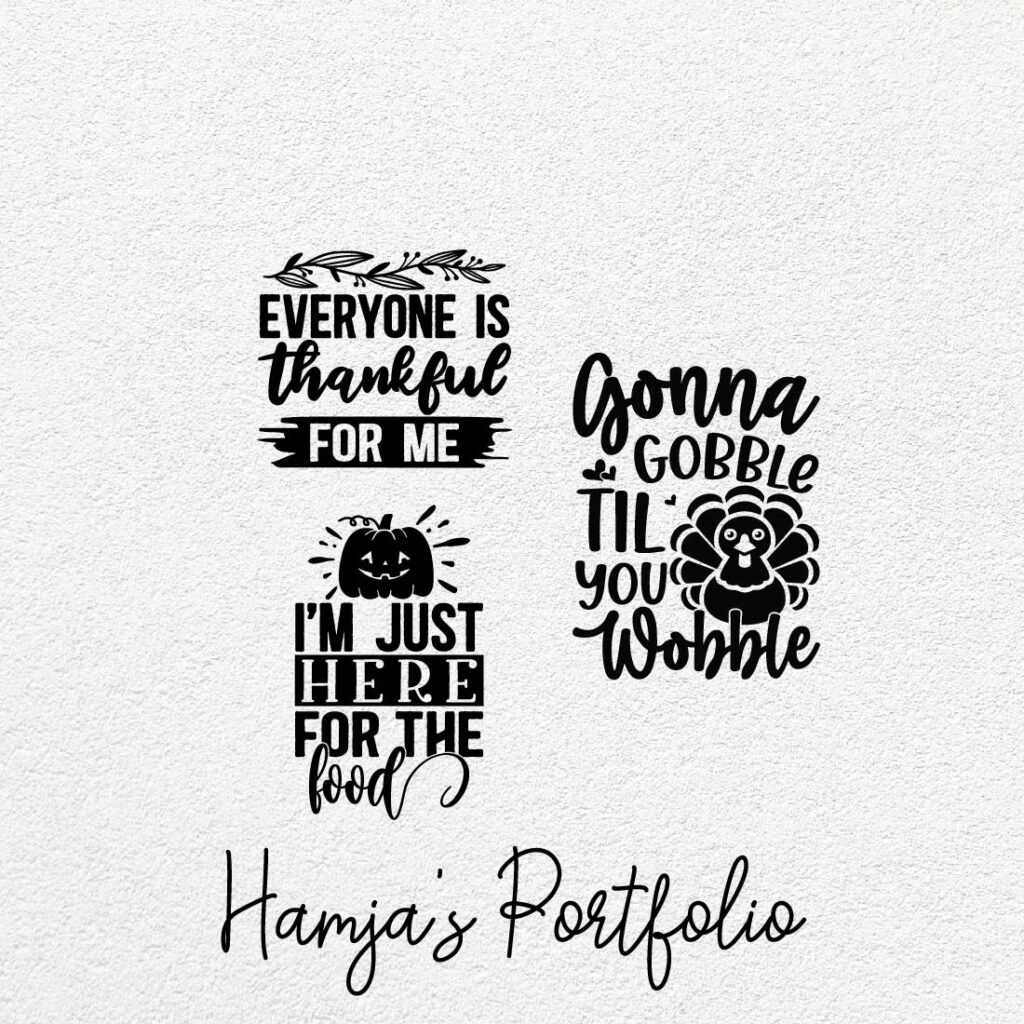 EVERYONE IS
thankful
FOR ME
Gonna
GOBBLE
TIL
YOU
Wobble
I'M JUST
HERE
FOR THE
food
Hamja's Portfolio